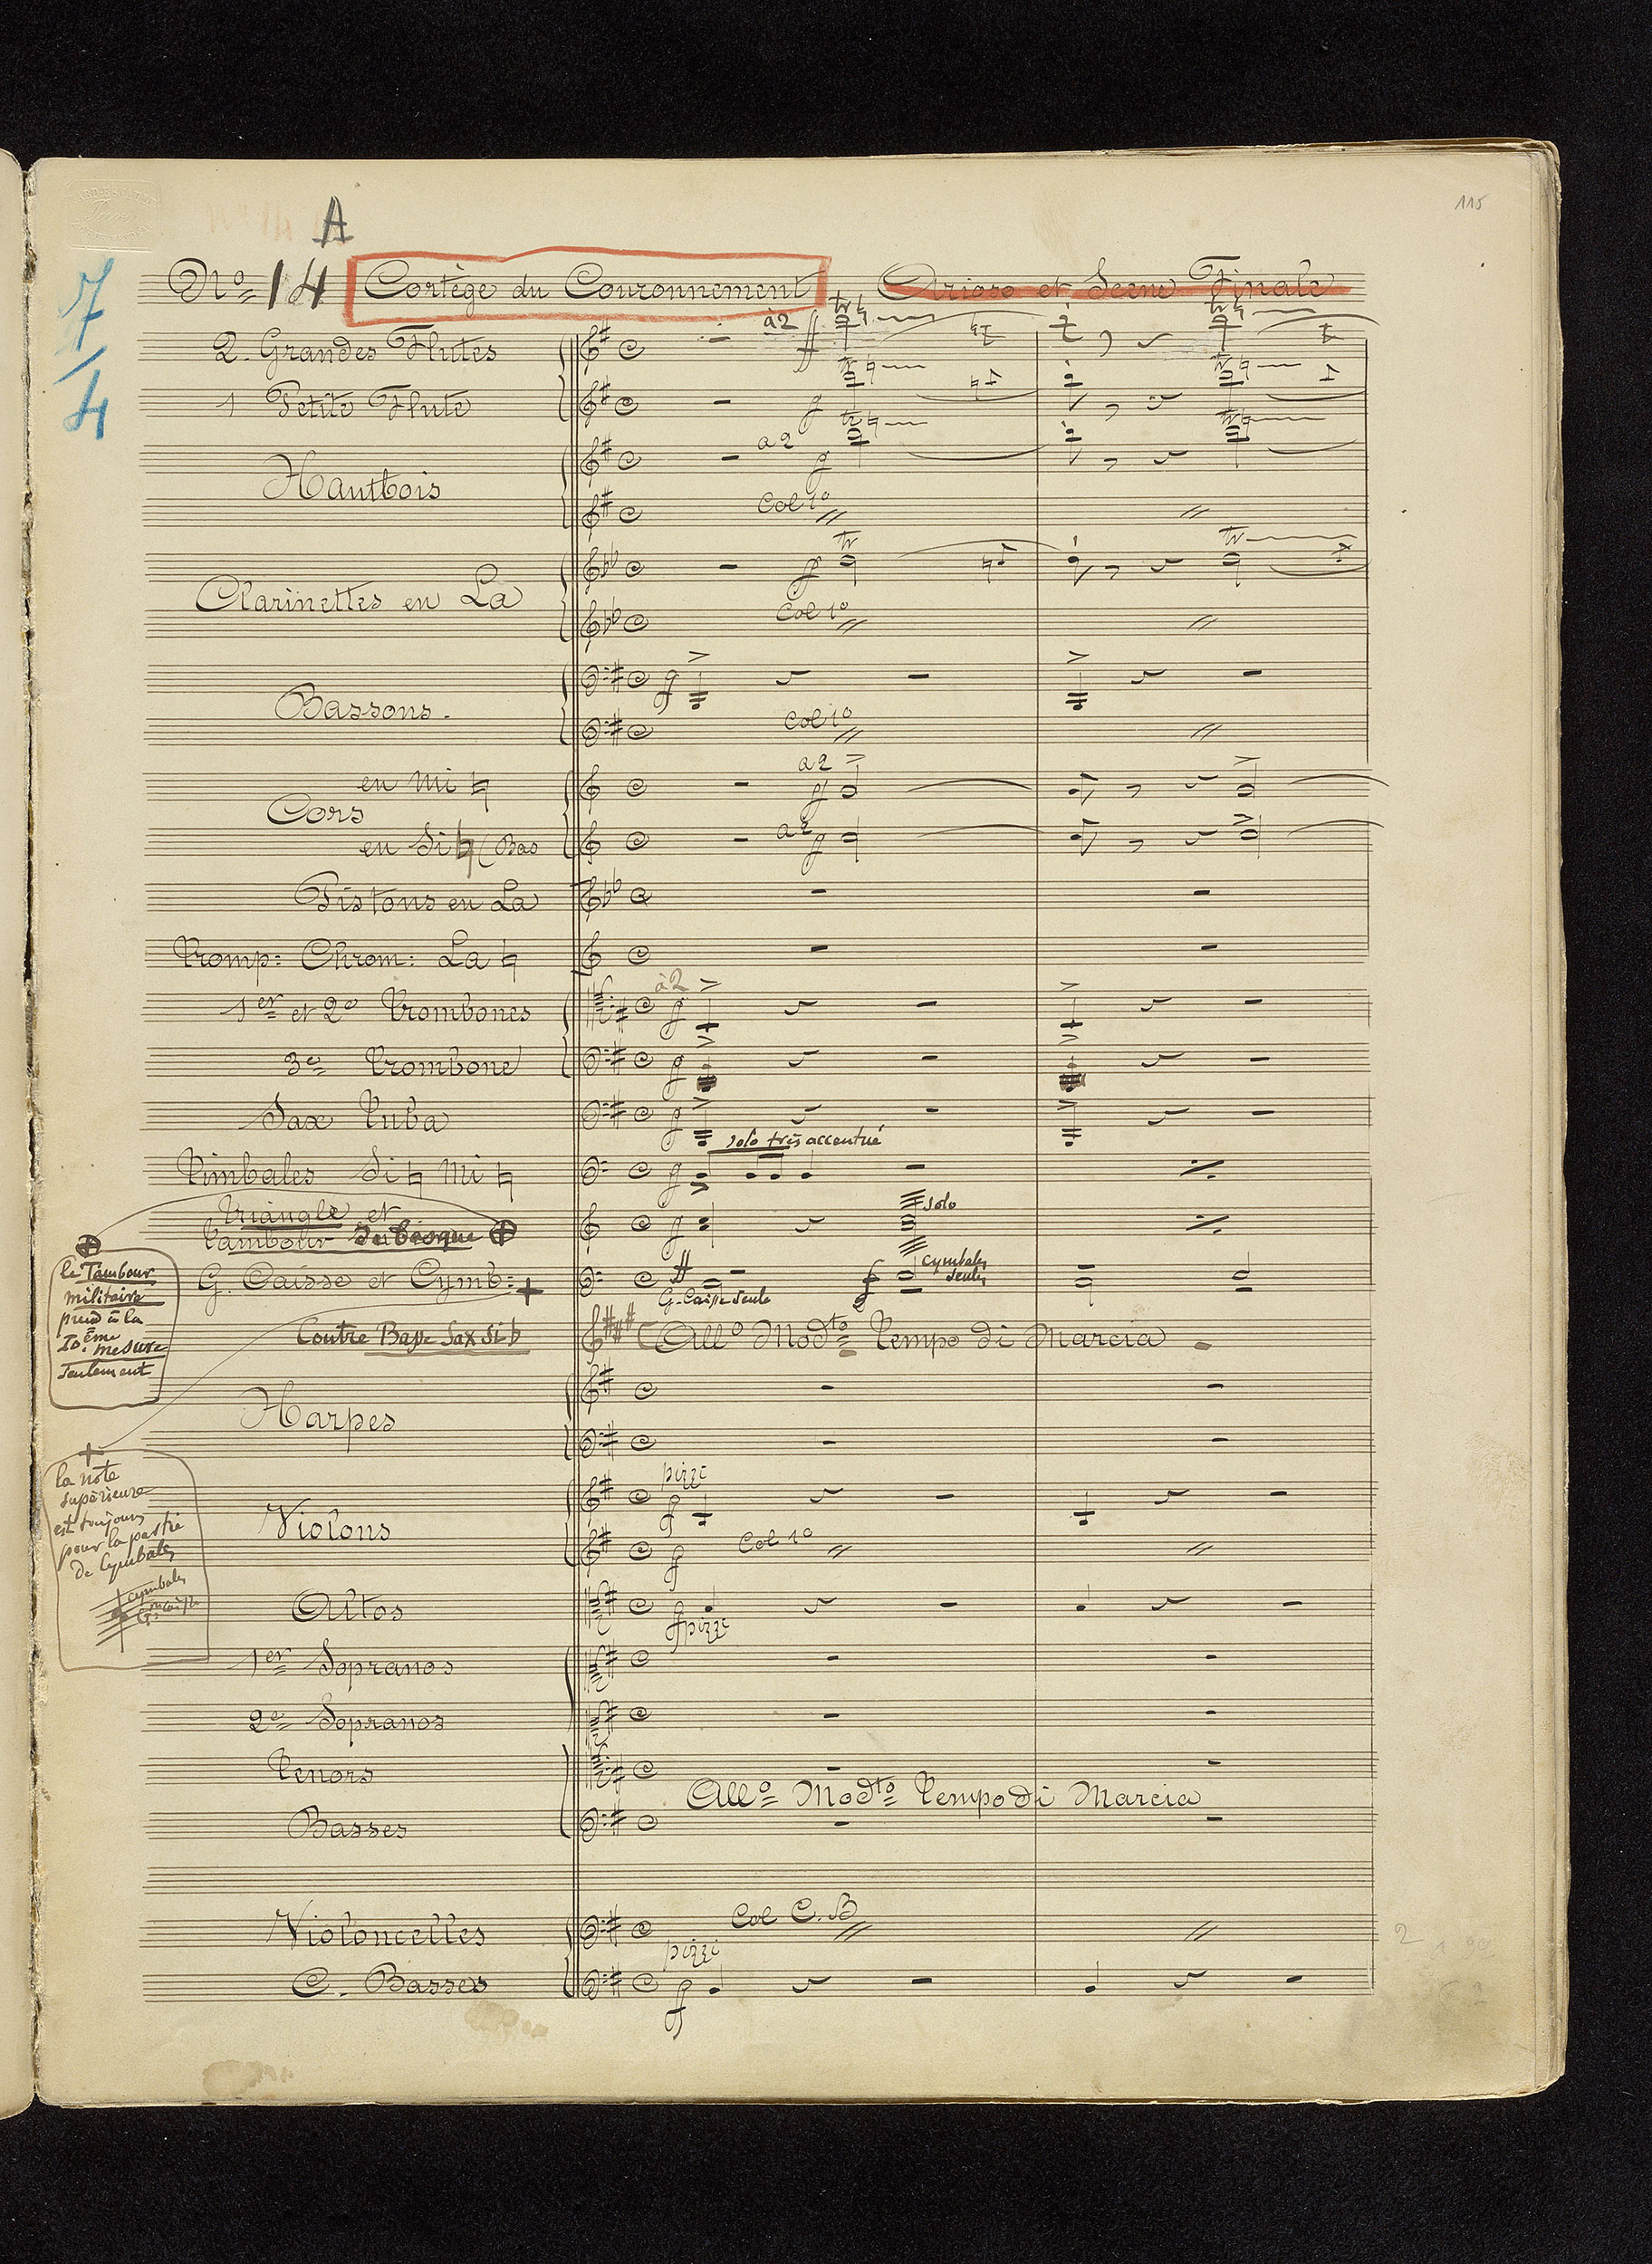 115
A
7/4
Nº 14 Cortège du Couronnement Arioso et Scene Finale
2. Grandes Flutes à2 ff tr
1 Petite Flute tr
Hautbois a 2 tr
Col 1º
Clarinettes en La tr tr
Col 1º
Bassons.
Col 1º
Cors
en Mi ♮ a 2
en Si ♮ (Bas a 2
Pistons en La
Tromp: Chrom: La ♮
1er et 2e Trombones à2
3e Trombone
Sax Tuba
Timbales Si ♮ Mi ♮ solo très accentué
Triangle et
Tambour de basque solo
G. Caisse et Cymb: + ff G. Caisse seule cymbales seules
le Tambour
militaire
prend à la
10ème mesure
seulement
Contre Basse Sax Si b (Allº Modto Tempo di Marcia
Harpes
+
la note
supérieure
est toujours
pour la partie
de Cymbales
cymbales
Violons pizzi
Col 1º
Altos pizzi
1er Sopranos
2e Sopranos
Tenors
Allº Modto Tempo di Marcia
Basses
Violoncelles Col C. B
C. Basses pizzi
2